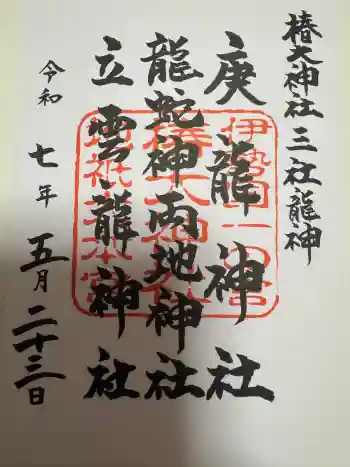 椿大神社 三社龍神
庚龍神社
龍蛇神両地神社
立雲龍神社
令和七年五月二十三日
伊勢国一の宮
椿大神社
地祇大本宮